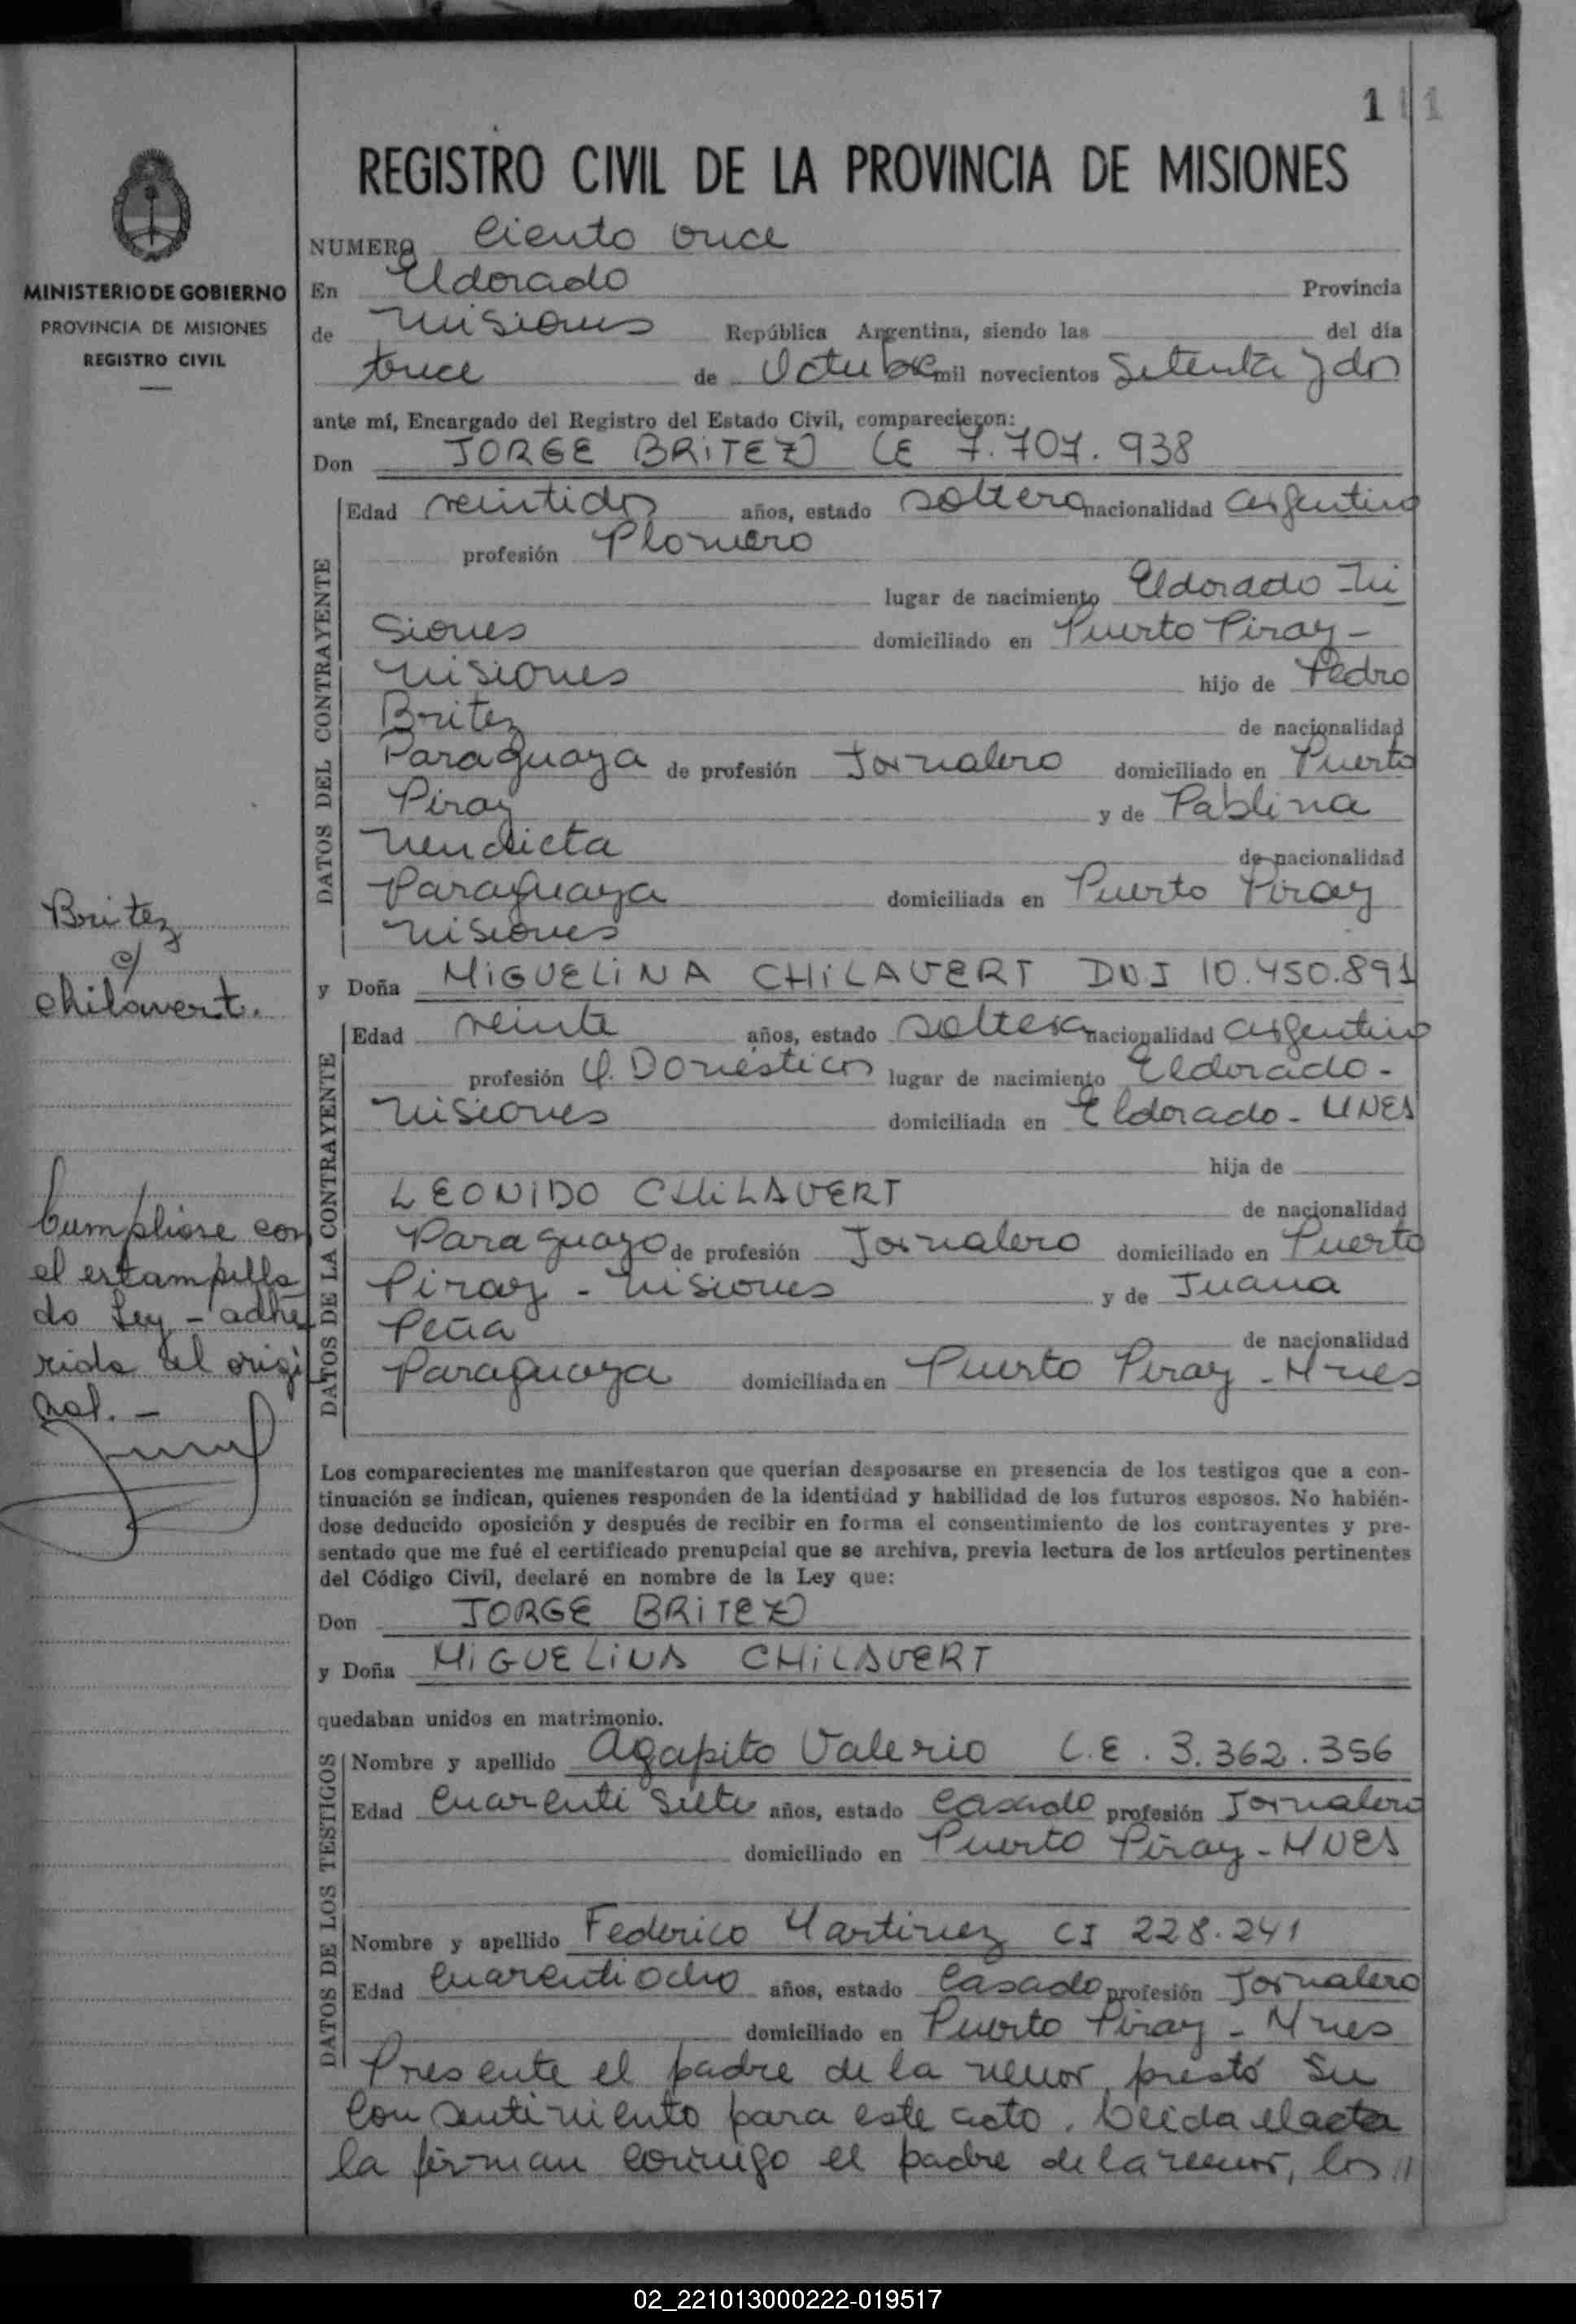 1 1 1
REGISTRO CIVIL DE LA PROVINCIA DE MISIONES
MINISTERIO DE GOBIERNO
PROVINCIA DE MISIONES
REGISTRO CIVIL
NUMERO Ciento once
En Eldorado Provincia
de Misiones República Argentina, siendo las del día
trece de Octubre mil novecientos Setenta y dos
ante mí, Encargado del Registro del Estado Civil, comparecieron:
Don JORGE BRITEZ LE 7.707.938
DATOS DEL CONTRAYENTE
Edad veintidos años, estado soltero nacionalidad argentino
profesión Plomero
lugar de nacimiento Eldorado Mi
siones domiciliado en Puerto Piray -
Misiones hijo de Pedro
Britez de nacionalidad
Paraguaya de profesión Jornalero domiciliado en Puerto
Piray y de Pablina
Mendieta de nacionalidad
Paraguaya domiciliada en Puerto Piray
Misiones
y Doña MIGUELINA CHILAVERT DNI 10.450.891
Britez
c/
Chilavert.
DATOS DE LA CONTRAYENTE
Edad veinte años, estado soltera nacionalidad argentino
profesión Q. Domésticos lugar de nacimiento Eldorado -
Misiones domiciliada en Eldorado - MNES
hija de
LEONIDO CHILAVERT de nacionalidad
Paraguayo de profesión Jornalero domiciliado en Puerto
Piray - Misiones y de Juana
Peña de nacionalidad
Paraguaya domiciliada en Puerto Piray - Mnes
Cumpliose con
el estampilla
do Ley - adhe
rido al origi
nal. -
Los comparecientes me manifestaron que querían desposarse en presencia de los testigos que a con-
tinuación se indican, quienes responden de la identidad y habilidad de los futuros esposos. No habién-
dose deducido oposición y después de recibir en forma el consentimiento de los contrayentes y pre-
sentado que me fué el certificado prenupcial que se archiva, previa lectura de los artículos pertinentes
del Código Civil, declaré en nombre de la Ley que:
Don JORGE BRITEZ
y Doña MIGUELINA CHILAVERT
quedaban unidos en matrimonio.
DATOS DE LOS TESTIGOS
Nombre y apellido Agapito Valerio L.E. 3.362.356
Edad Cuarenti Siete años, estado Casado profesión Jornalero
domiciliado en Puerto Piray - MNES
Nombre y apellido Federico Martinez CI 228.241
Edad Cuarentiocho años, estado Casado profesión Jornalero
domiciliado en Puerto Piray - Mnes
Presente el padre de la menor prestó su
Consentimiento para este acto. Leida el acta
la firman conmigo el padre de la menor, los //
02_221013000222-019517